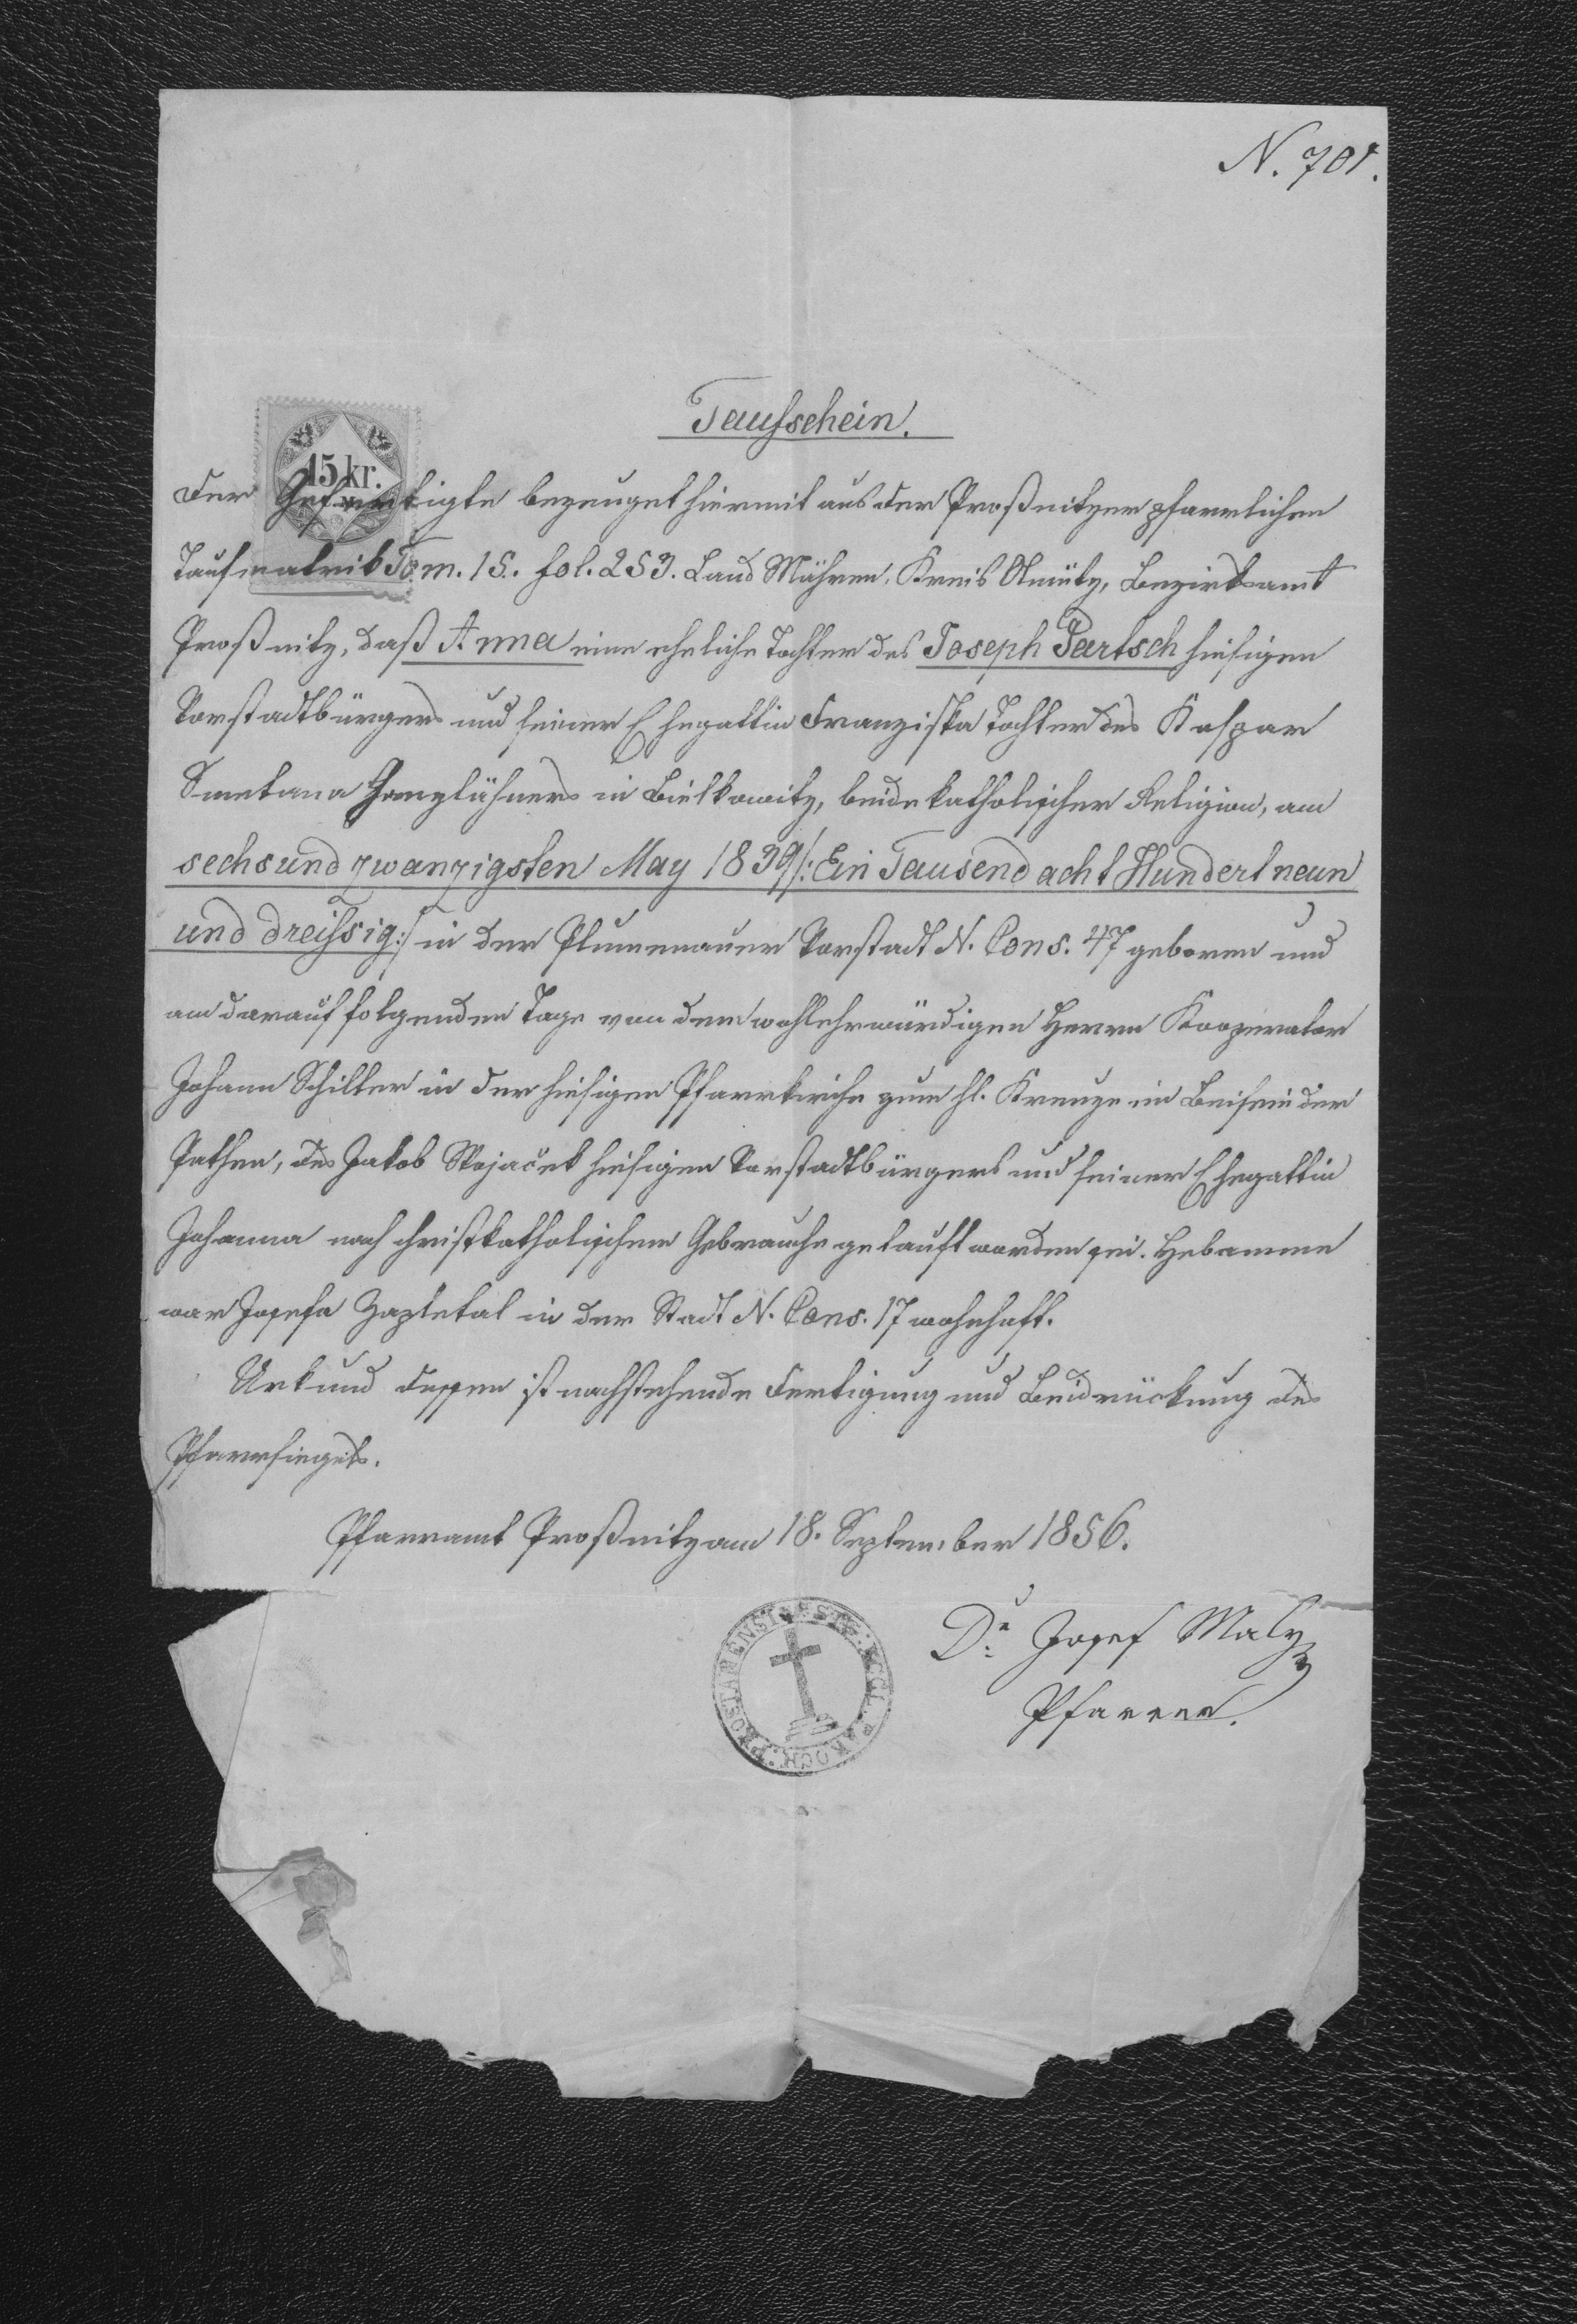 N. 701.
Taufschein.
15 kr.
Der Gefertigte bezeuget hiermit aus der Proßnitzer pfarrlichen
Taufmatrik Tom. 15. fol. 253. Land Mähren, Kreis Olmütz, Bezirksamt
Proßnitz, daß Anna eine eheliche Tochter des Joseph Partsch hiesigen
Vorstadtbürgers und seiner Ehegattin Franziska Tochter des Kaspar
Smetana Ganzlähners in Bielkowitz, beide katholischer Religion, am
sechsundzwanzigsten May 1839 /: Ein Tausend acht Hundert neun
und dreissig :/ in der Plumenauer Vorstadt N. Cons. 47 geboren und
am darauf folgenden Tage von dem wohlehrwürdigen Herrn Kooperator
Johann Schiller in der hiesigen Pfarrkirche zum hl. Kreuze im Beisein der
Pathen, des Jakob hiesigen Vorstadtbürgers und seiner Ehegattin
Johanna nach christkatholischem Gebrauche getauft worden sei. Hebamme
war Josefa Zapletal in der Stadt N. Cons. 17 wohnhaft.
Urkund dessen ist nachstehende Fertigung und Beidrückung des
Pfarrsiegels.
Pfarramt Proßnitz am 18. September 1856.
Dr. Josef Maly
Pfarrer.
ECCL. PAROCH. PROSTANENSIS